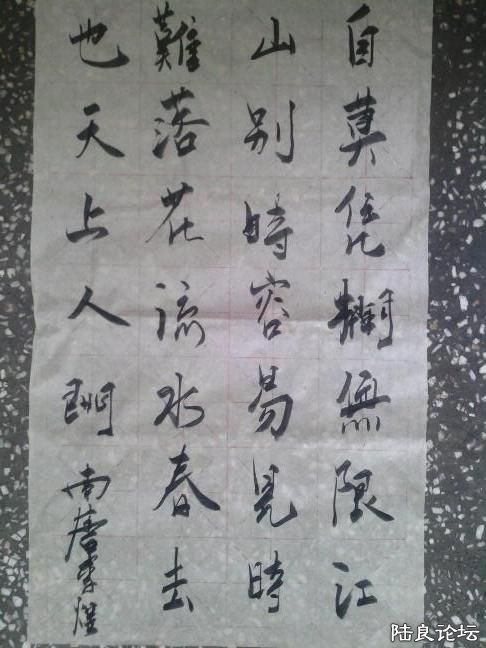 自莫凭欄無限江
山别時容易見時
難落花流水春去
也天上人間南唐李煜
陆良论坛